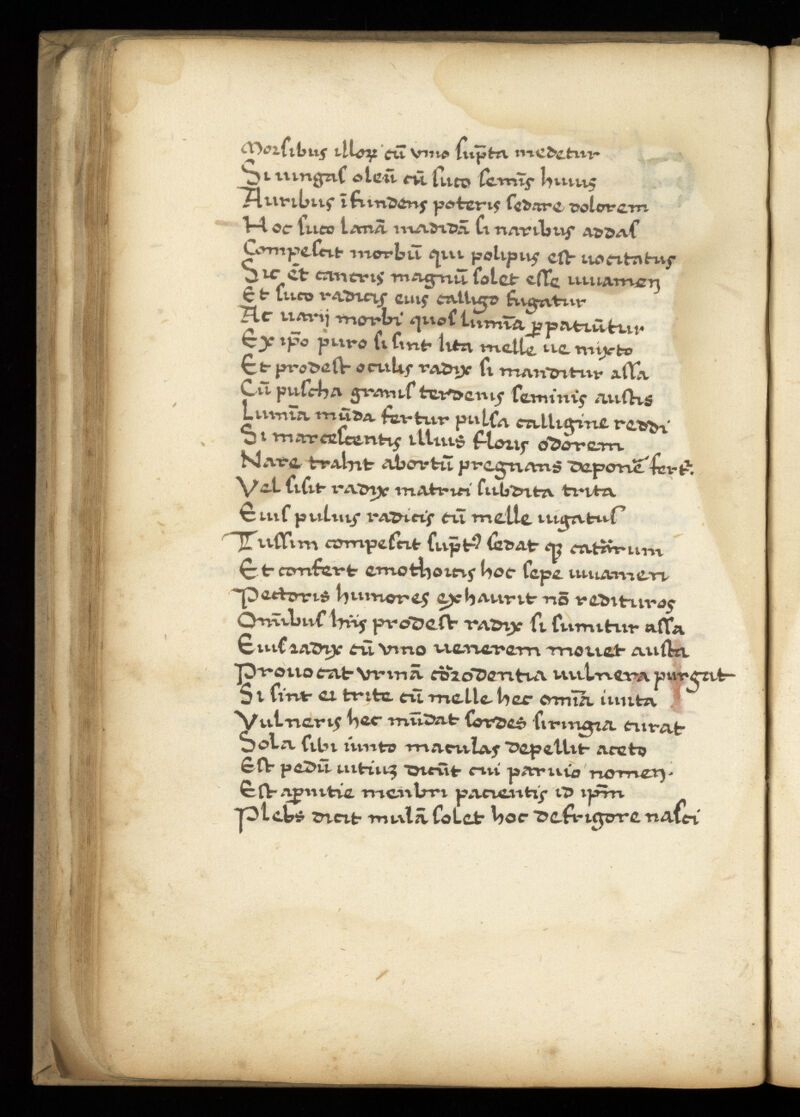 Morsibus illoꝝ cū vino sūpta medetur
Si iungas oleū cū suco semīs huius
Auribus īfundens poteris sedare dolorem
Hoc suco lanā madidā si naribus addas
Compescit morbū qui polipus est uocitatus
Sic et cancris magnū solet esse iuuamen
Et suco radicis eius calligo fugatur
Ac uarij morbi quos lumīa ꝑpatiūtur
Ex ip̄o puro si sint lita melle ue mixto
Et prodest oculis radix si manditur assa
Cū puscha granis terdenis seminis austis
Lumīa mūda fertur pulsa calligine reddi
Si marcescentis illius floris odorem
Nare trahit abortū pregnans deponē̄ fert̉.
Vel si sit radix matrici subdita trita
Eius puluis radicis cū melle iugatus
Tussim compescit sūpt᷒ sedat qꝫ catārum
Et confert emothoicis hoc sepe iuuamen
Pectoris humores exhaurit nō redituros
Omībus hīs prodest radix si sumitur assa
Eius radix cū vino uenerem mouet austa
Prouocat vrinā corrodentia uulnera purgat
Si sint ei trite cū melle hec omīa iuncta
Vulneris hec mūdat sordes siringia curat
Sola sibi iunto maculas depellit aceto
Est pedū uitiuꝫ dicūt cui paruio nomen.
Est apnitie menbri pacientis id ip̄m
Plebs dicit mulā solet hoc de frigore nasci